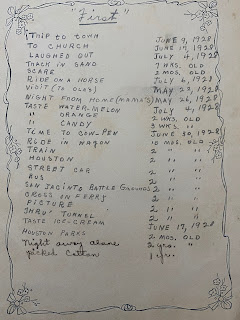 "First"
TRIP TO TOWN JUNE 9, 1928
TO CHURCH JUNE 17, 1928
LAUGHED OUT JULY 4, 1928
TRACK IN SAND 7 WKS. OLD
SCARE 2 MOS. OLD
RIDE ON A HORSE JULY 6, 1928
VISIT (TO CLAY) MAY 22, 1928
NIGHT FROM HOME (MAMA'S) MAY 26, 1928
TASTE WATER-MELON JULY 4, 1928
" ORANGE 2 WKS. OLD
" CANDY 3 WKS. "
TIME TO COW-PEN JUNE 30, 1928
RIDE IN WAGON 10 MOS. OLD
TRAIN 2 " "
HOUSTON 2 " "
STREET CAR 2 " "
BUS 2 " "
SAN JACINTO BATTLE GROUNDS 2 " "
CROSS ON FERRY 2 " "
PICTURE 2 " "
THRU TUNNEL 2 " "
TASTE ICE-CREAM JUNE 17, 1928
HOUSTON PARKS 2 MOS. OLD
Night away alone 2 yrs. "
picked Cotton 1 yr.